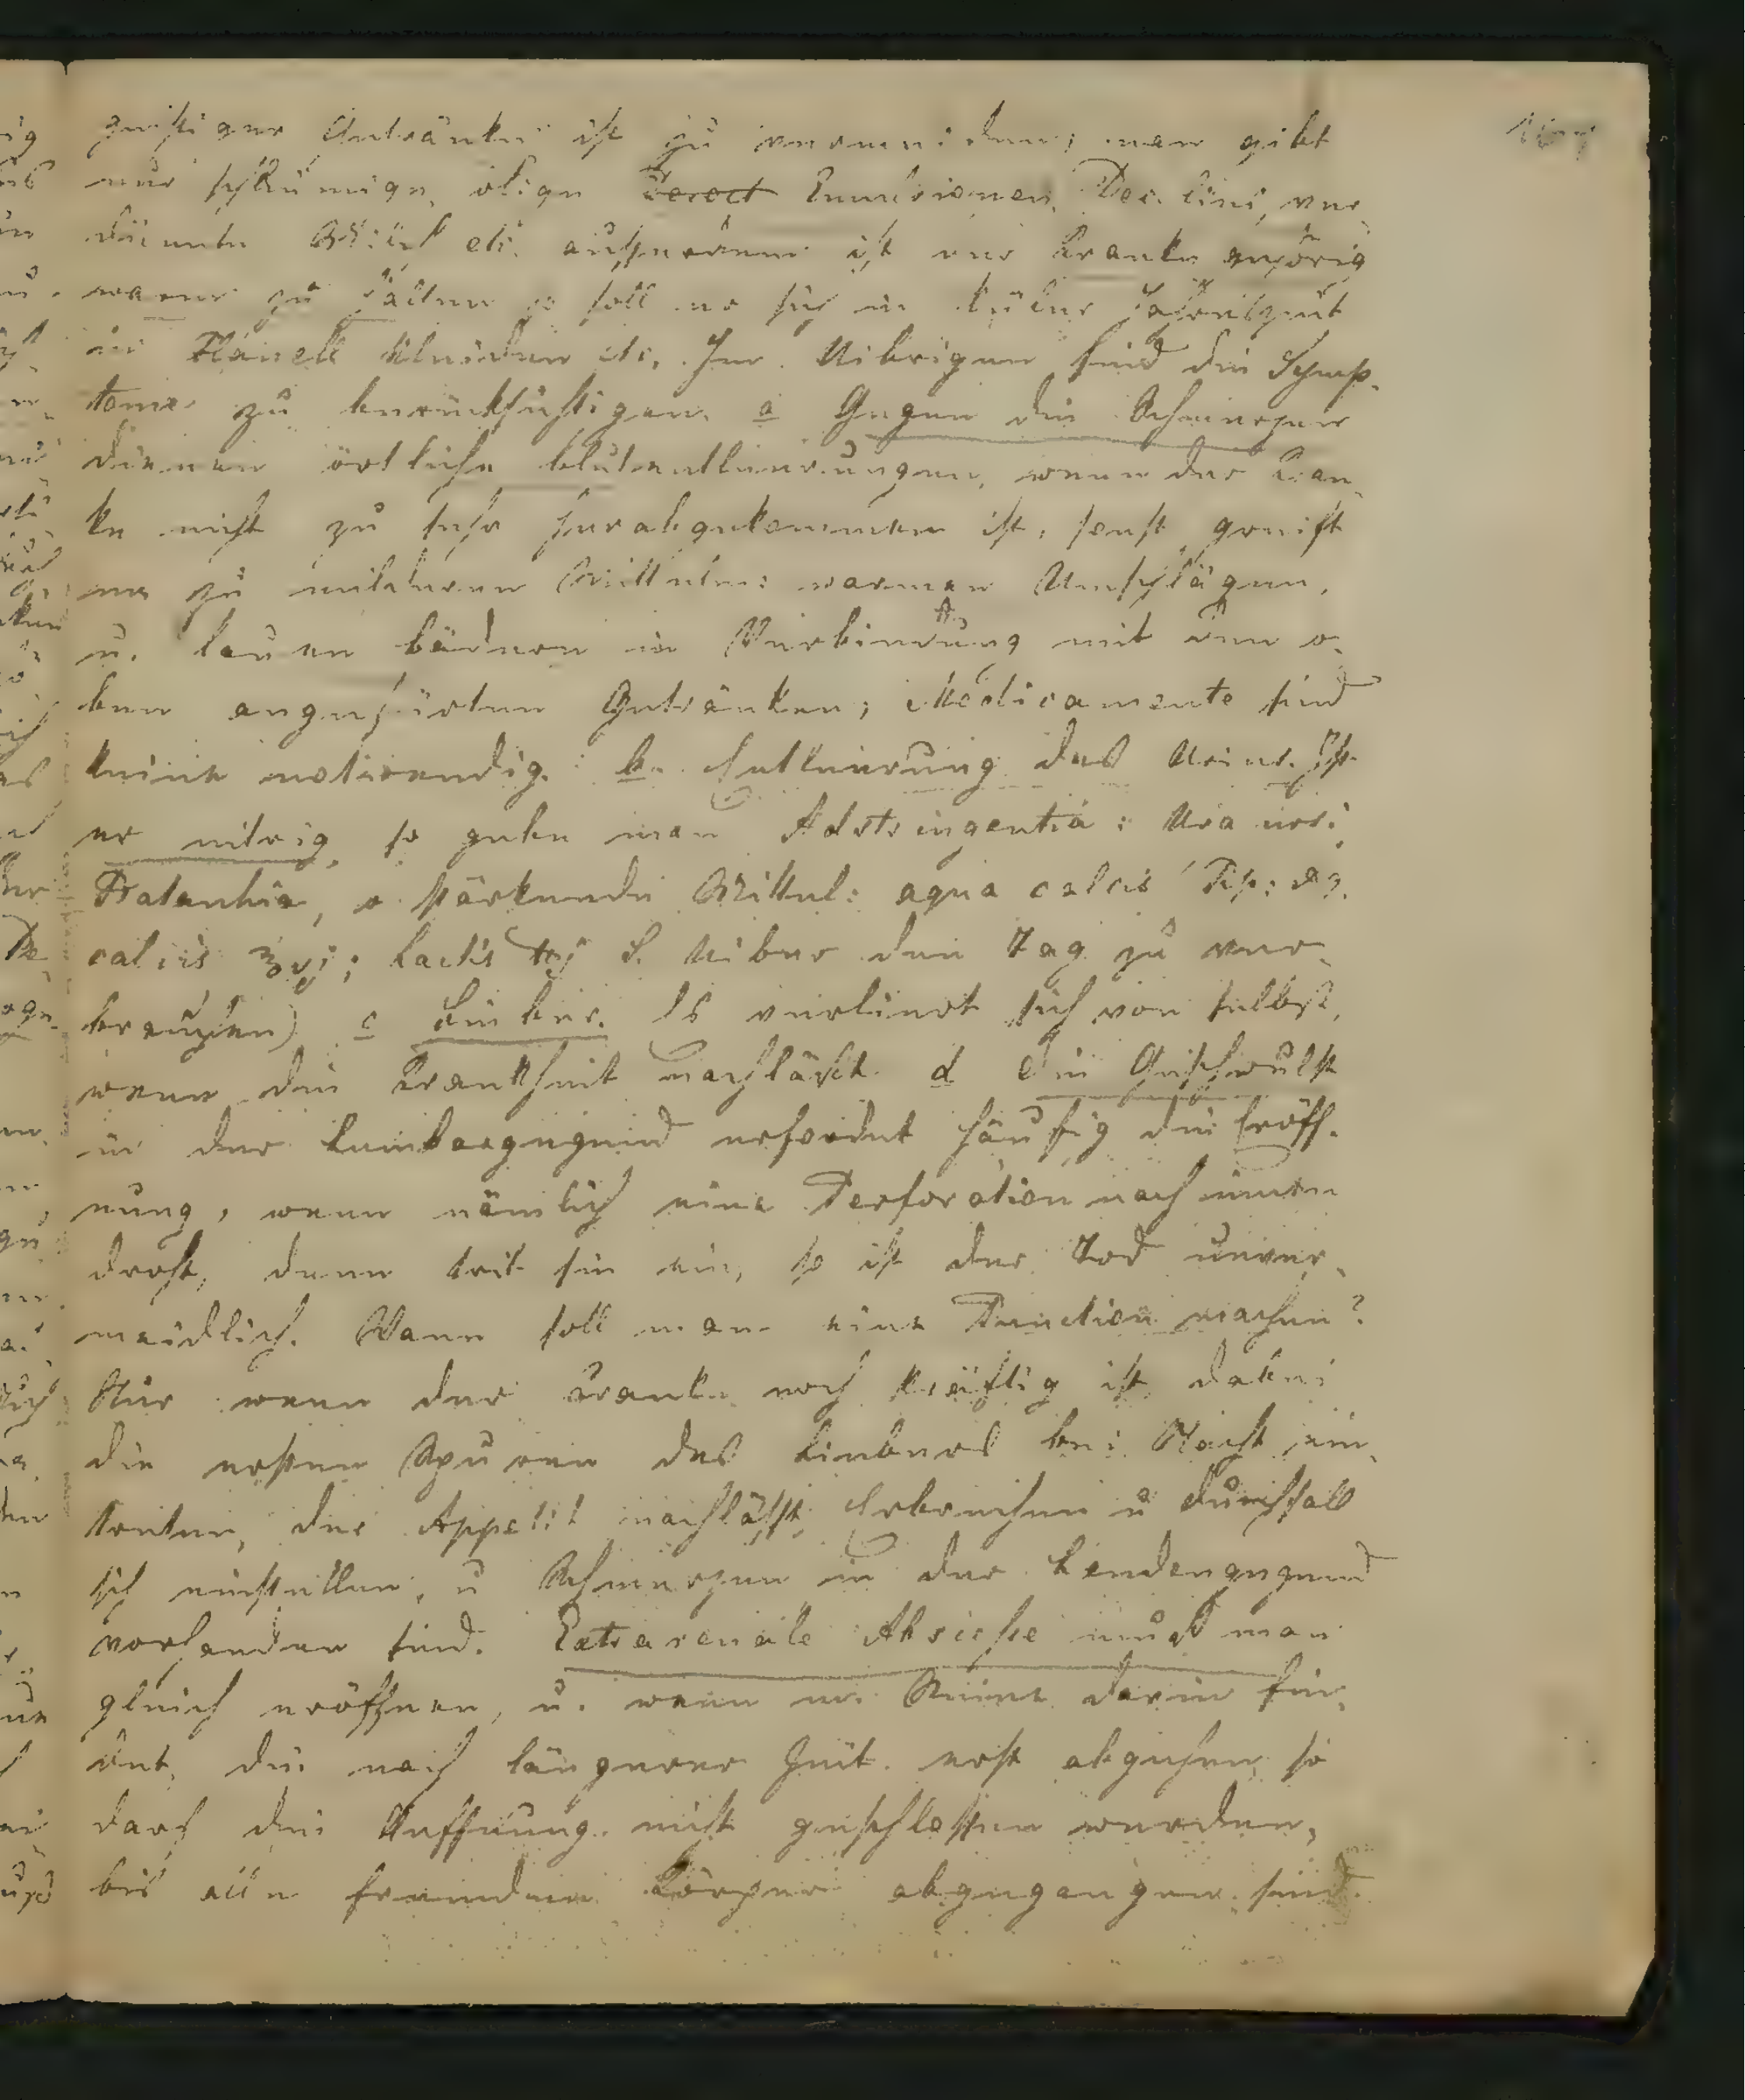 geistiger Getränke ist zu vermeiden; man gibt
nur schleimige, ölige Decoct Emulsionen, Dec. lini, ver¬
dünnte Milch etc. außerdem ist der Kranke gehörig
warm zu halten so soll er sich in kühler Jahreszeit
in Flanell kleiden etc. Im Uibrigen sind die Symp¬
tome zu berücksichtigen. a Gegen die Schmerzen
dienen örtliche Blutentleerungen, wenn der Kran¬
ke nicht zu sehr herabgekommen ist, sonst greift
man zu milderen Mitteln: warmen Umschlägen,
u. lauen Bädern in Verbindung mit den o¬
ben angeführten Getränken; Medicamente sind
keine notwendig. b. Entleerung des Urins. Ist
er eitrig, so gebe man Adstringentia: Uva ursi,
Ratanhia, stärkende Mittel: aqua calcis Rp: aq.
calcis ℥vj; Lactis ℔j S. Uiber den Tag zu ver¬
brauchen) c Fieber. Es verliert sich von selbst,
wenn die Krankheit nachläßt. d Die Geschwulst
in der Lumbargegend erfordert häufig die Eröff¬
nung, wenn nämlich eine Perforation nach innen
droht, denn trit sie ein, so ist der Tod unver¬
meidlich. Wann soll man eine Punction machen?
Nur wenn der Kranke noch kräftig ist, dabei
die ersten Spuren des Fiebers bei Nacht ein¬
treten, der Appetit nachläßt, Erbrechen u Durchfall
sich einstellen, u Schmerzen in der Lendengegend
vorhanden sind. Extrarenale Abscesse muß man
gleich eröffnen, u. wenn man Steine darin fin¬
det, die nach längerer Zeit erst abgehen, so
darf die Oeffnung nicht geschlossen werden,
bis alle fremden Körper abgegangen sind.